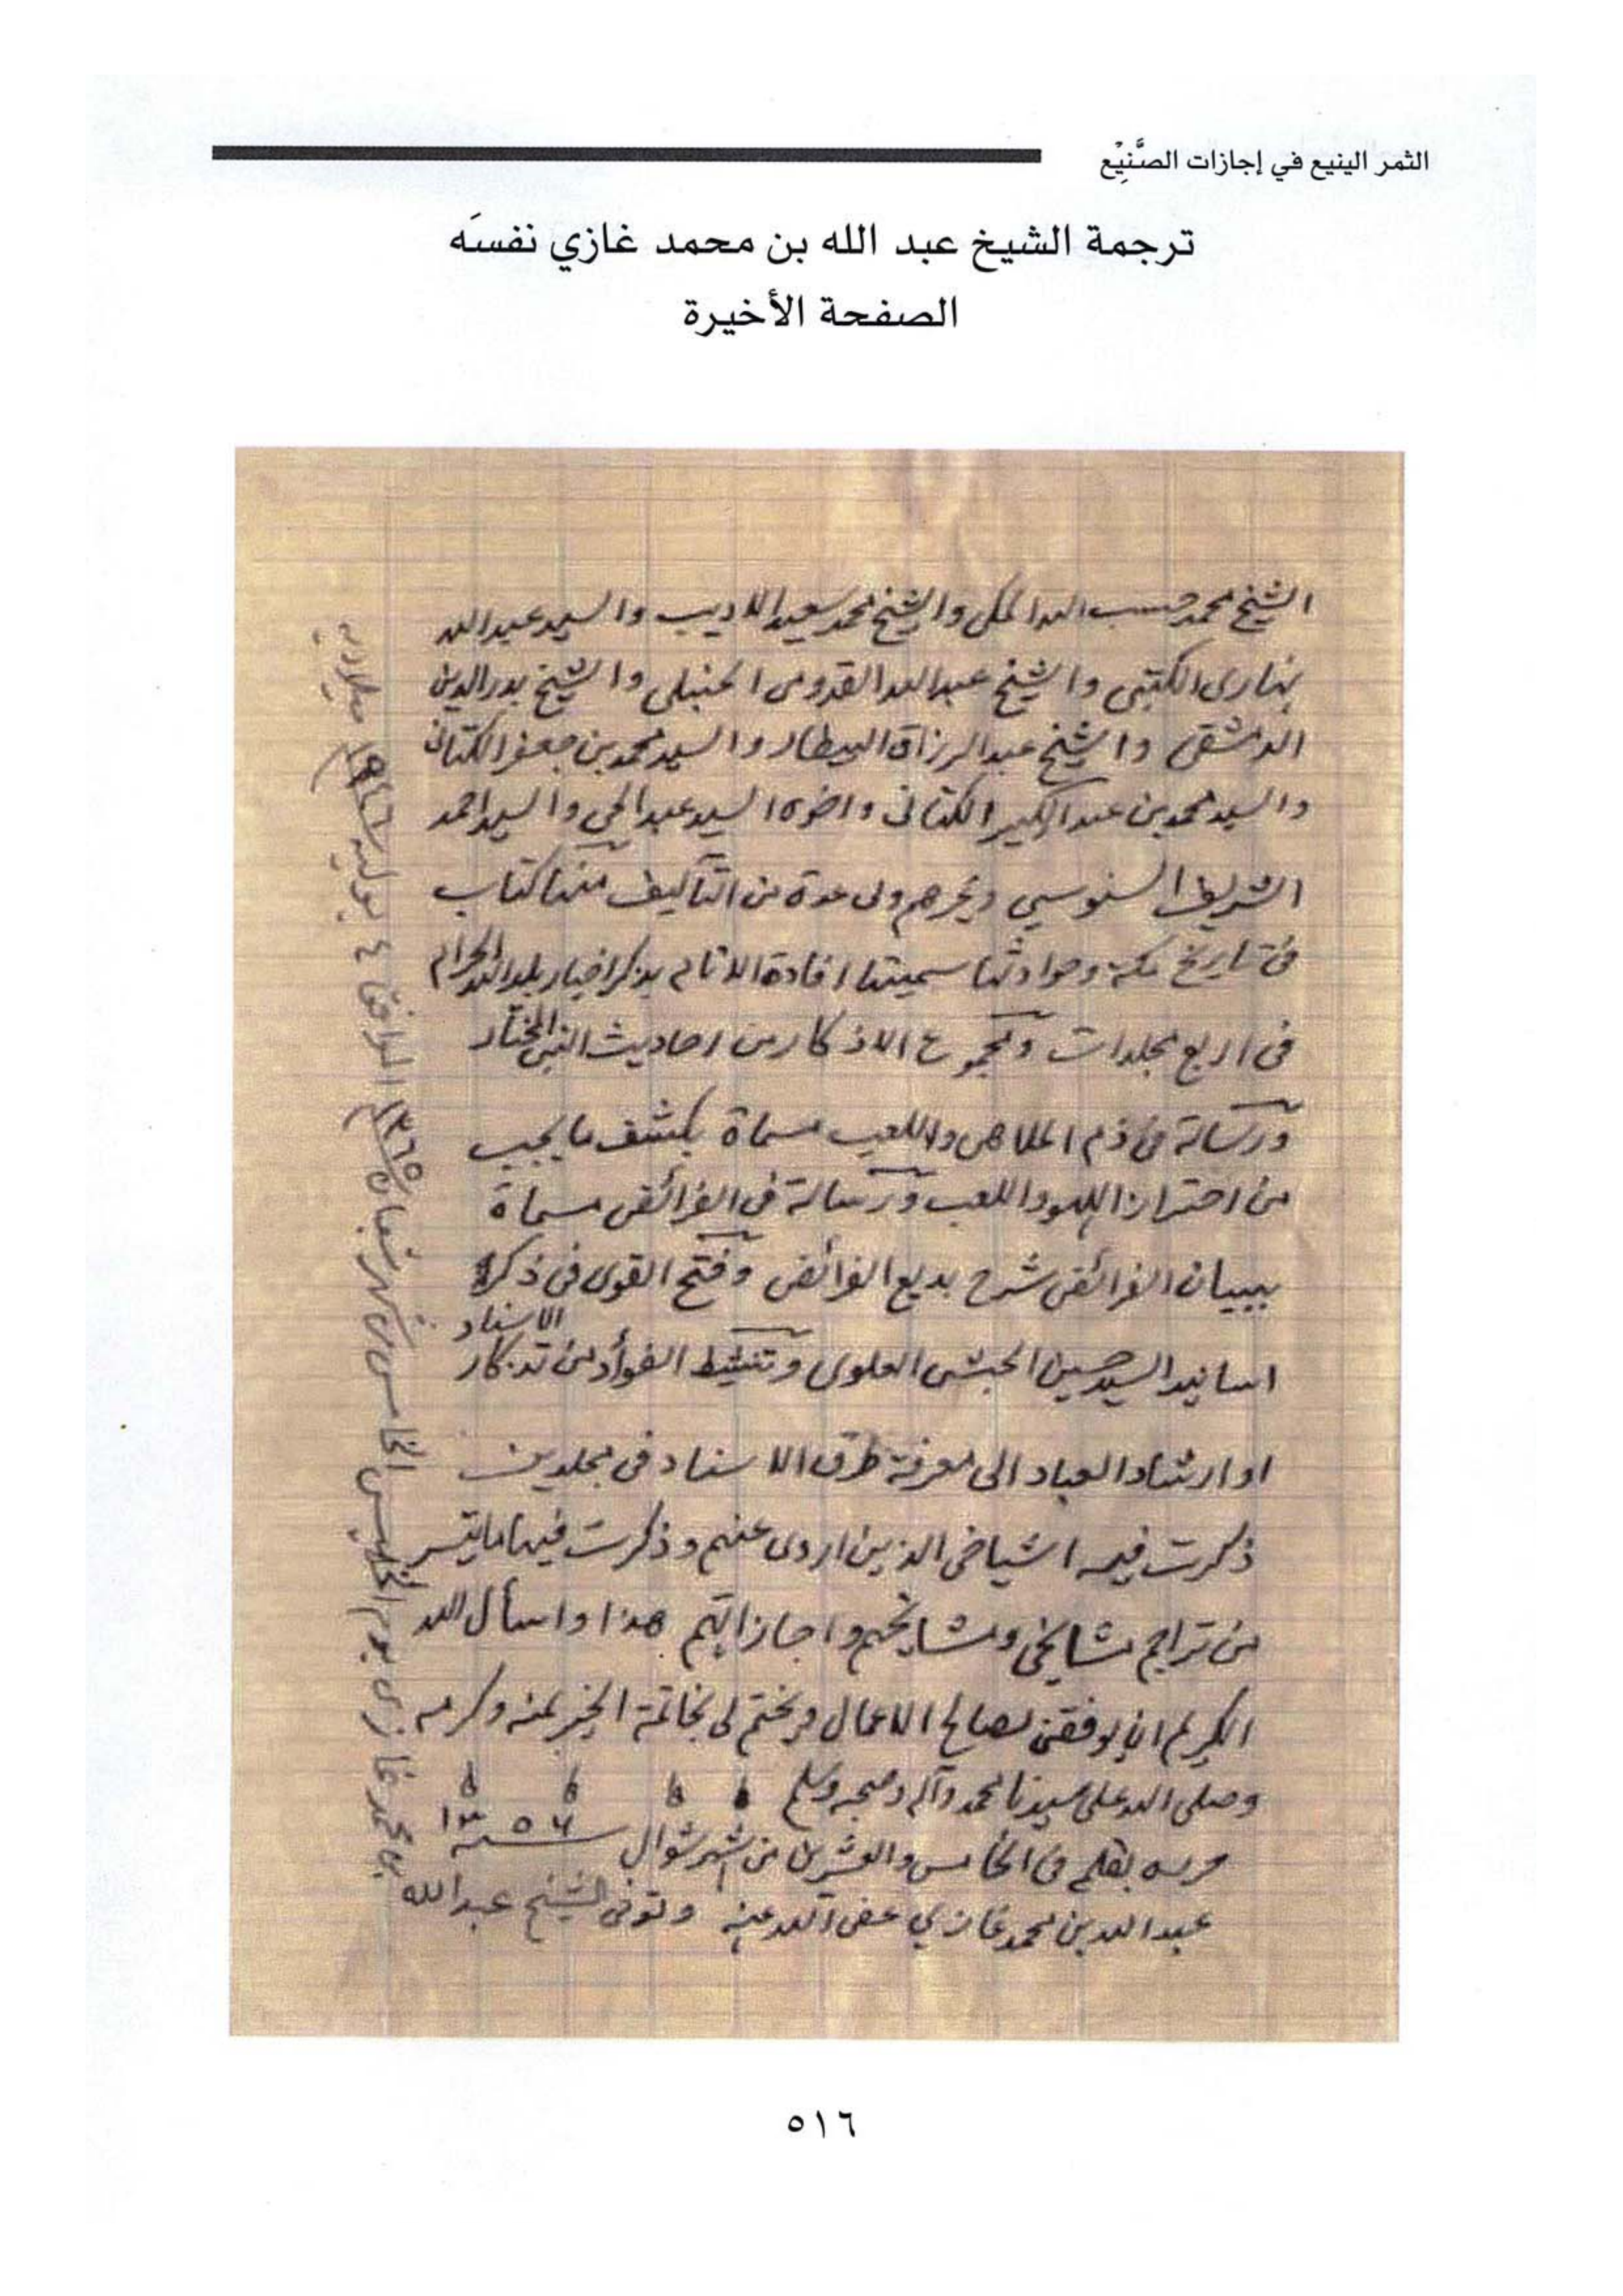 الثمر الينيع في إجازات الصَّنِيْع
ترجمة الشيخ عبد الله بن محمد غازي نفسَه
الصفحة الأخيرة
الشيخ محمد حسب الله المكي والشيخ محمد سعيد الاديب والسيد عبد الله
بنهارى الكتبى والشيخ عبد الله القدومى الحنبلى والشيخ بدر الدين
الدمشقى والشيخ عبد الرزاق البيطار والسيد محمد بن جعفر الكتانى
والسيد محمد بن عبد الكبير الكتانى واخوه السيد عبد الحي والسيد احمد
الشريف السنوسي وغيرهم ولى عدة من التآليف منها كتاب
فى تاريخ مكة وحوادثها سميتها افادة الانام بذكر اخبار بلد الله الحرام
فى اربع مجلدات ومجموع الاذكار من احاديث النبى المختار
ورسالة فى ذم الملاهى واللعب مسماة بكشف ما يجب
من احتراز اللهو واللعب ورسالة فى الفرائض مسماة
ببيان الفرائض شرح بديع الفرائض وفتح القوى فى ذكر
اسانيد السيد حسين الحبشى العلوى وتنشيط الفؤاد من تذكار الاسناد
او ارشاد العباد الى معرفة طرق الاسناد فى مجلدين
ذكرت فيه اشياخى الذين اروى عنهم وذكرت فيها ما يتسر
من تراجم مشايخى ومشايخهم واجازاتهم هذا واسأل الله
الكريم ان يوفقنى لصالح الاعمال ويختم لى بخاتمة الخير بمنه وكرمه
وصلى الله على سيدنا محمد وآله وصحبه وسلم
حرره بقلمه فى الخامس والعشرين من شهر شوال سنة ١٣٥٦
عبد الله بن محمد غازي عفى الله عنه وتوفى الشيخ عبد الله
بن محمد غازى يوم الخميس الخامس من شهر شعبان ١٣٦٥ الموافق ٤ يوليه ١٩٤٦م ميلاديه
٥١٦